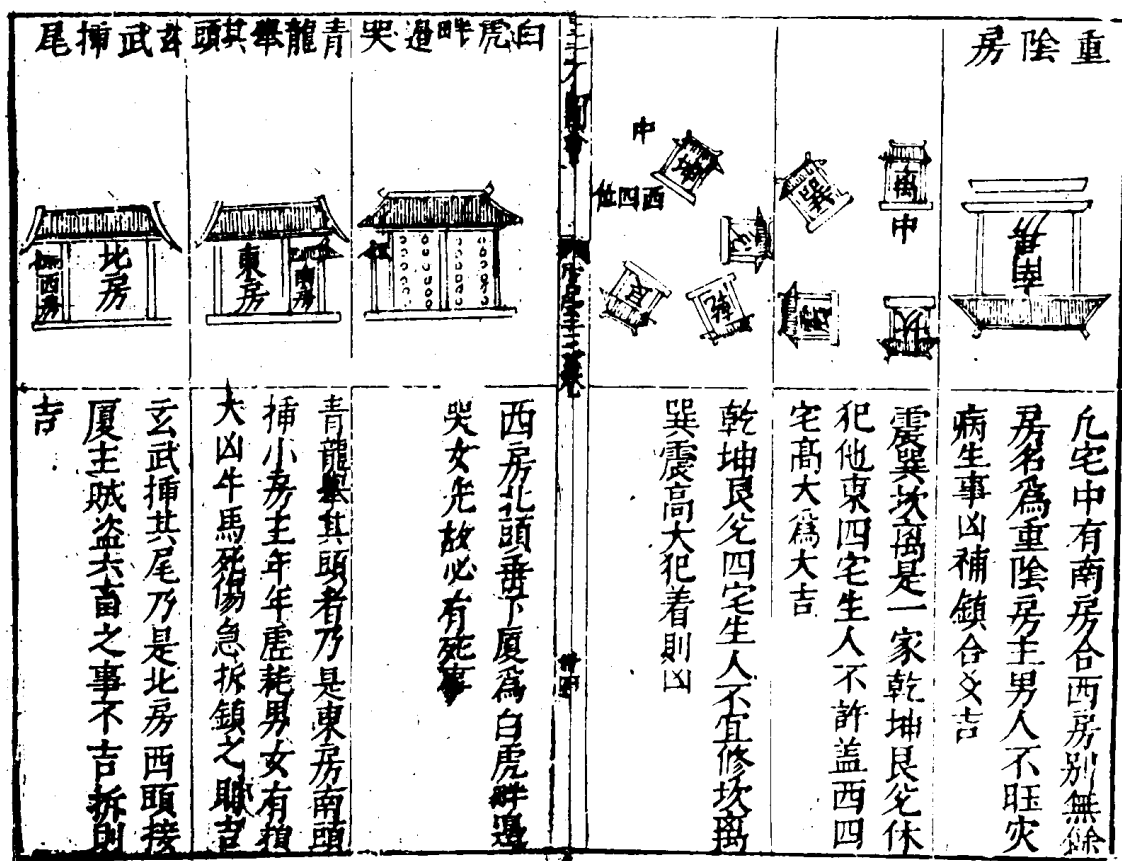 重陰房
南房
凡宅中有南房合西房別無餘
房名為重陰房主男人不旺灾
病生事凶補鎮合爻吉
離
中
坎
巽
震
震巽坎离是一家乾坤艮兊休
犯他東四宅生人不許盖西四
宅髙大為大吉
中
坤
西四位
兊
乾
艮
乾坤艮兊四宅生人不宜修坎离
巽震高大犯着則凶
三才圖會
白虎畔邉哭
西房北頭垂下厦為白虎畔邊
哭女先故必有死事
青龍舉其頭
東房
南房
青龍舉其頭者乃是東房南頭
揷小房主年年虛耗男女有損
大凶牛馬死傷急拆鎮之
吉
玄武揷尾
北房
西房
玄武揷其尾乃是北房西頭接
厦主賊盜六畜之事不吉拆則
吉